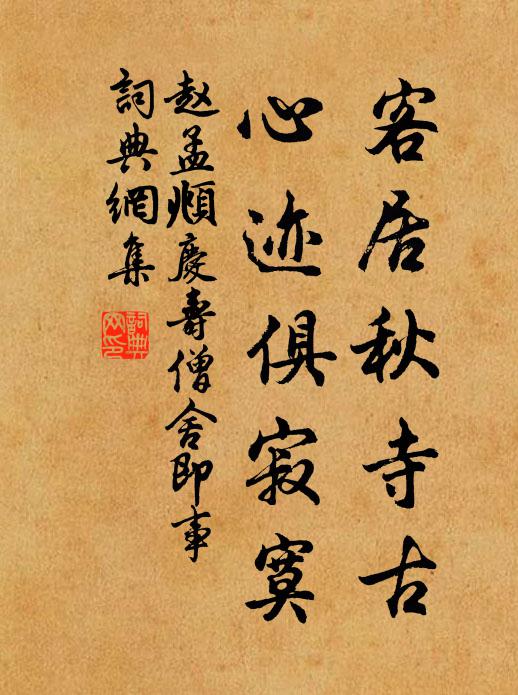 客居秋寺古
心迹俱寂寞
赵孟頫慶壽僧舍即事
詞典網集
詞典网印